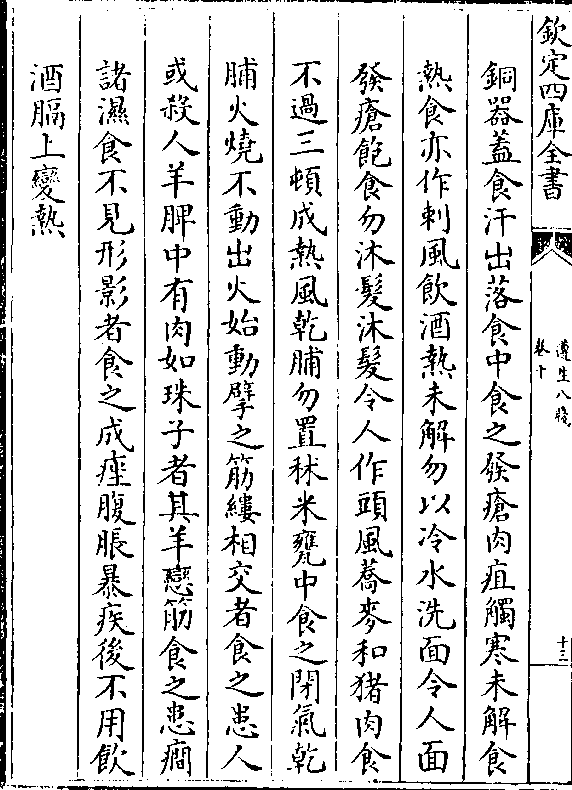 欽定四庫全書
遵生八牋
卷十
十三
銅器蓋食汗出落食中食之發瘡肉疽觸寒未解食
熱食亦作刺風飲酒熱未解勿以冷水洗面令人面
發瘡飽食勿沐髮沐髮令人作頭風蕎麥和猪肉食
不過三頓成熱風乾脯勿置秫米甕中食之閉氣乾
脯火燒不動出火始動擘之筋縷相交者食之患人
或殺人羊脾中有肉如珠子者其羊戀筋食之患癇
諸濕食不見形影者食之成痤腹脹暴疾後不用飲
酒膈上變熱